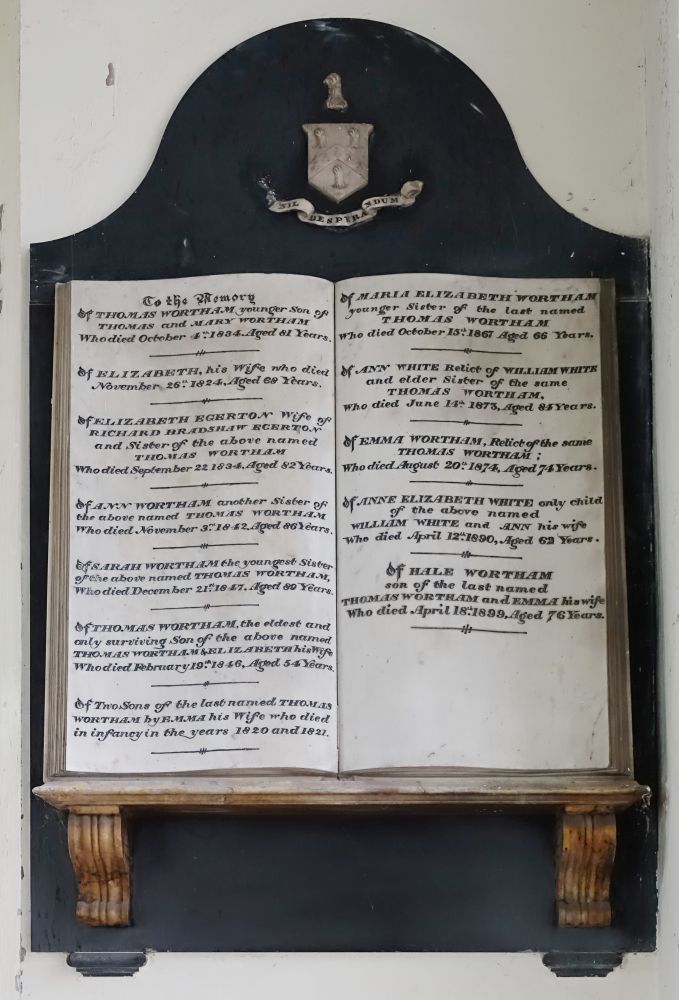 NIL DESPERANDUM
To the Memory
Of THOMAS WORTHAM younger Son of
THOMAS and MARY WORTHAM
Who died October 4th 1834. Aged 81 Years.
Of ELIZABETH, his Wife who died
November 26th 1824, Aged 68 Years.
Of ELIZABETH EGERTON Wife of
RICHARD BRADSHAW EGERTON
and Sister of the above named
THOMAS WORTHAM
Who died September 22 1834. Aged 82 Years.
Of ANN WORTHAM another Sister of
the above named THOMAS WORTHAM
Who died November 3rd 1842. Aged 86 Years.
Of SARAH WORTHAM the youngest Sister
of the above named THOMAS WORTHAM,
Who died December 21st 1847. Aged 89 Years.
Of THOMAS WORTHAM, the eldest and
only surviving Son of the above named
THOMAS WORTHAM & ELIZABETH his Wife
Who died February 19th 1846, Aged 54 Years.
Of Two Sons of the last named THOMAS
WORTHAM by EMMA his Wife who died
in infancy in the years 1820 and 1821.
Of MARIA ELIZABETH WORTHAM
younger Sister of the last named
THOMAS WORTHAM
Who died October 15th 1867 Aged 66 Years.
Of ANN WHITE Relict of WILLIAM WHITE
and elder Sister of the same
THOMAS WORTHAM,
Who died June 14th 1873, Aged 84 Years.
Of EMMA WORTHAM, Relict of the same
THOMAS WORTHAM;
Who died August 20th 1874, Aged 74 Years.
Of ANNE ELIZABETH WHITE only child
of the above named
WILLIAM WHITE and ANN his wife
Who died April 12th 1890, Aged 62 Years.
Of HALE WORTHAM
son of the last named
THOMAS WORTHAM and EMMA his wife
Who died April 18th 1899, Aged 76 Years.